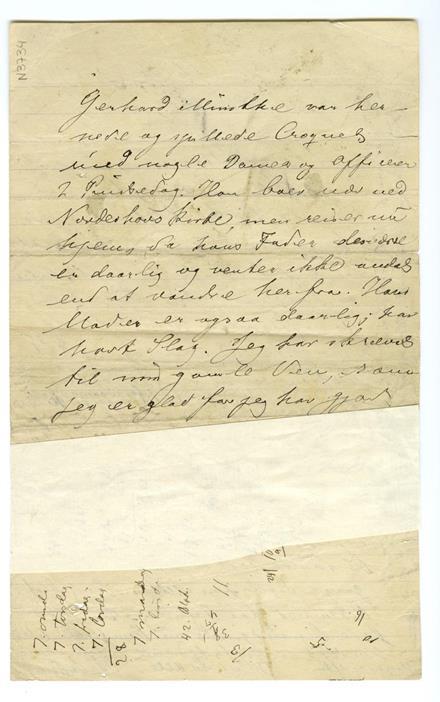 N3734
Gerhard Münthe var her
nede og spillede Croquet
med nogle Damer og Officerer
2 Pindsedag. Han boer ved
Norderhovs Kirke, men reiser nu
hjem, da hans Fader desværre
er daarlig og venter ikke andet
end at vandre herfra. Hans
Moder er ogsaa daarlig; har
havt Slag. Jeg har skrevet
til min gamle Ven, som
jeg er glad for jeg har gjort
7. onsd.
7. torsdag
7. fredag.
7. lørdag
28
7 mandag
42
11
13
10
5
10
16